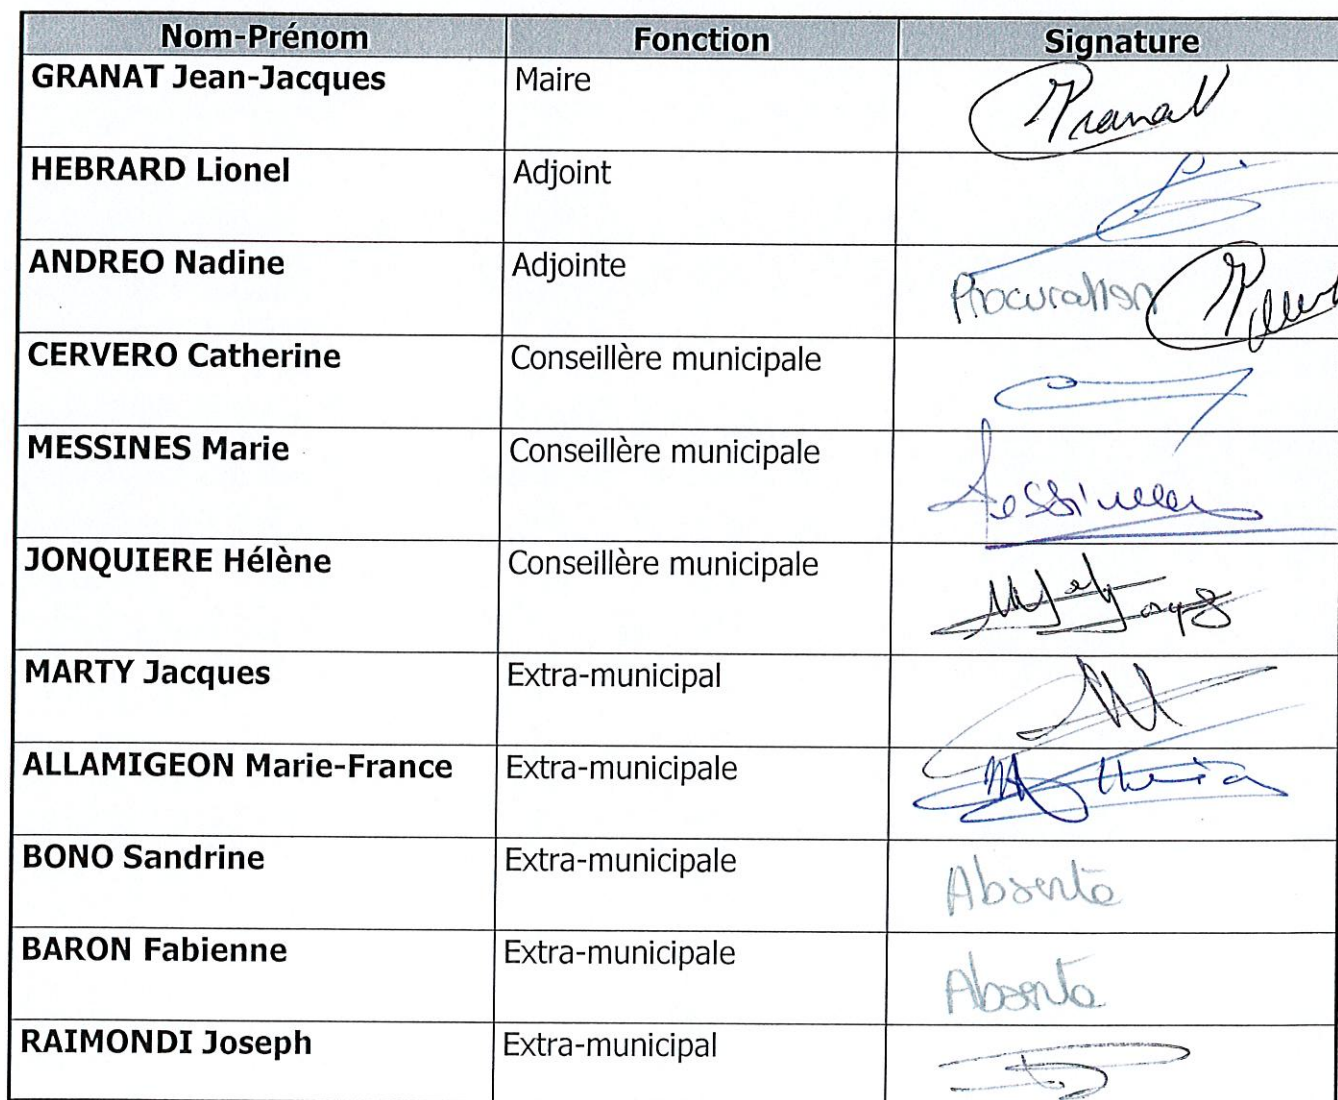 Nom-Prénom Fonction Signature
GRANAT Jean-Jacques Maire Granat
HEBRARD Lionel Adjoint
ANDREO Nadine Adjointe Procuration
CERVERO Catherine Conseillère municipale
MESSINES Marie Conseillère municipale Messines
JONQUIERE Hélène Conseillère municipale
MARTY Jacques Extra-municipal
ALLAMIGEON Marie-France Extra-municipale
BONO Sandrine Extra-municipale Absente
BARON Fabienne Extra-municipale Absente
RAIMONDI Joseph Extra-municipal